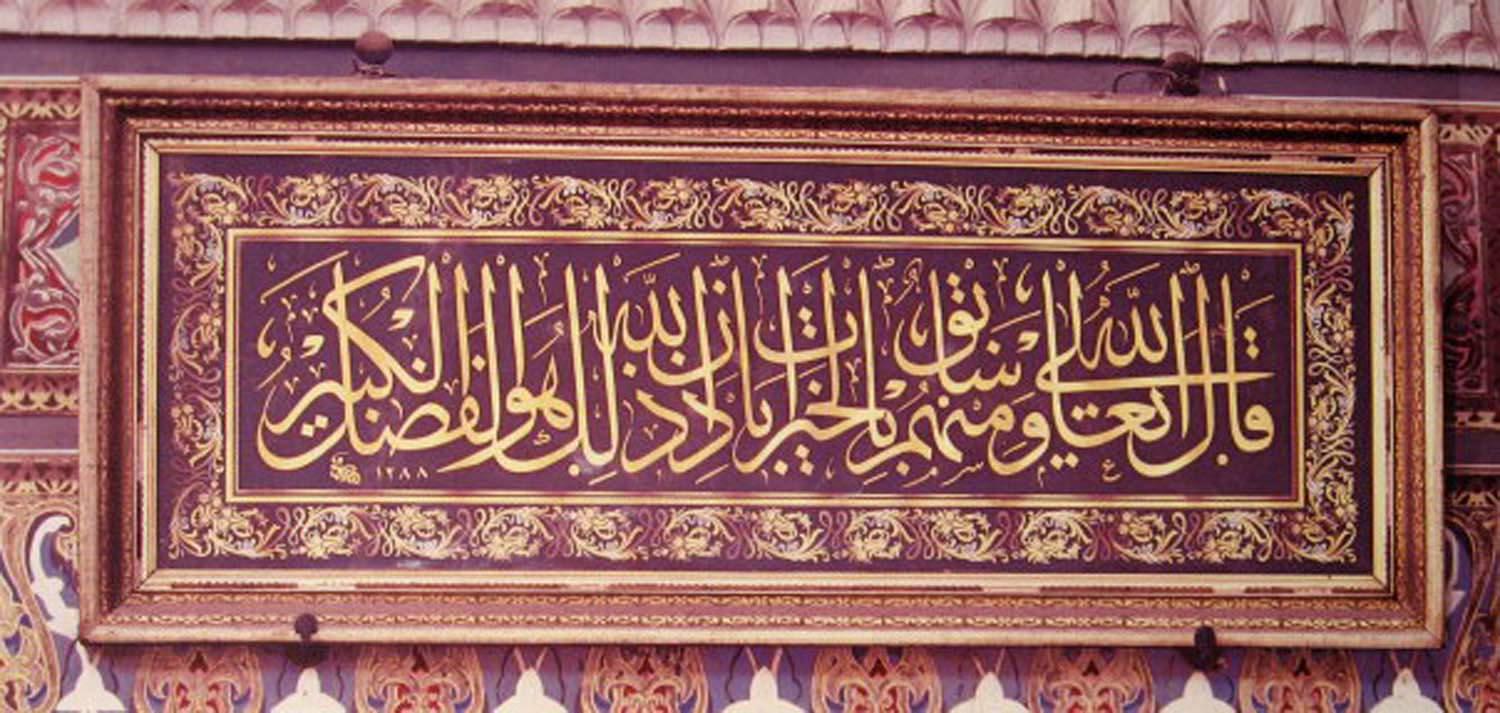 قال الله تعالى ومنهم سابق بالخيرات باذن الله ذلك هو الفضل الكبير
١٢٨٨